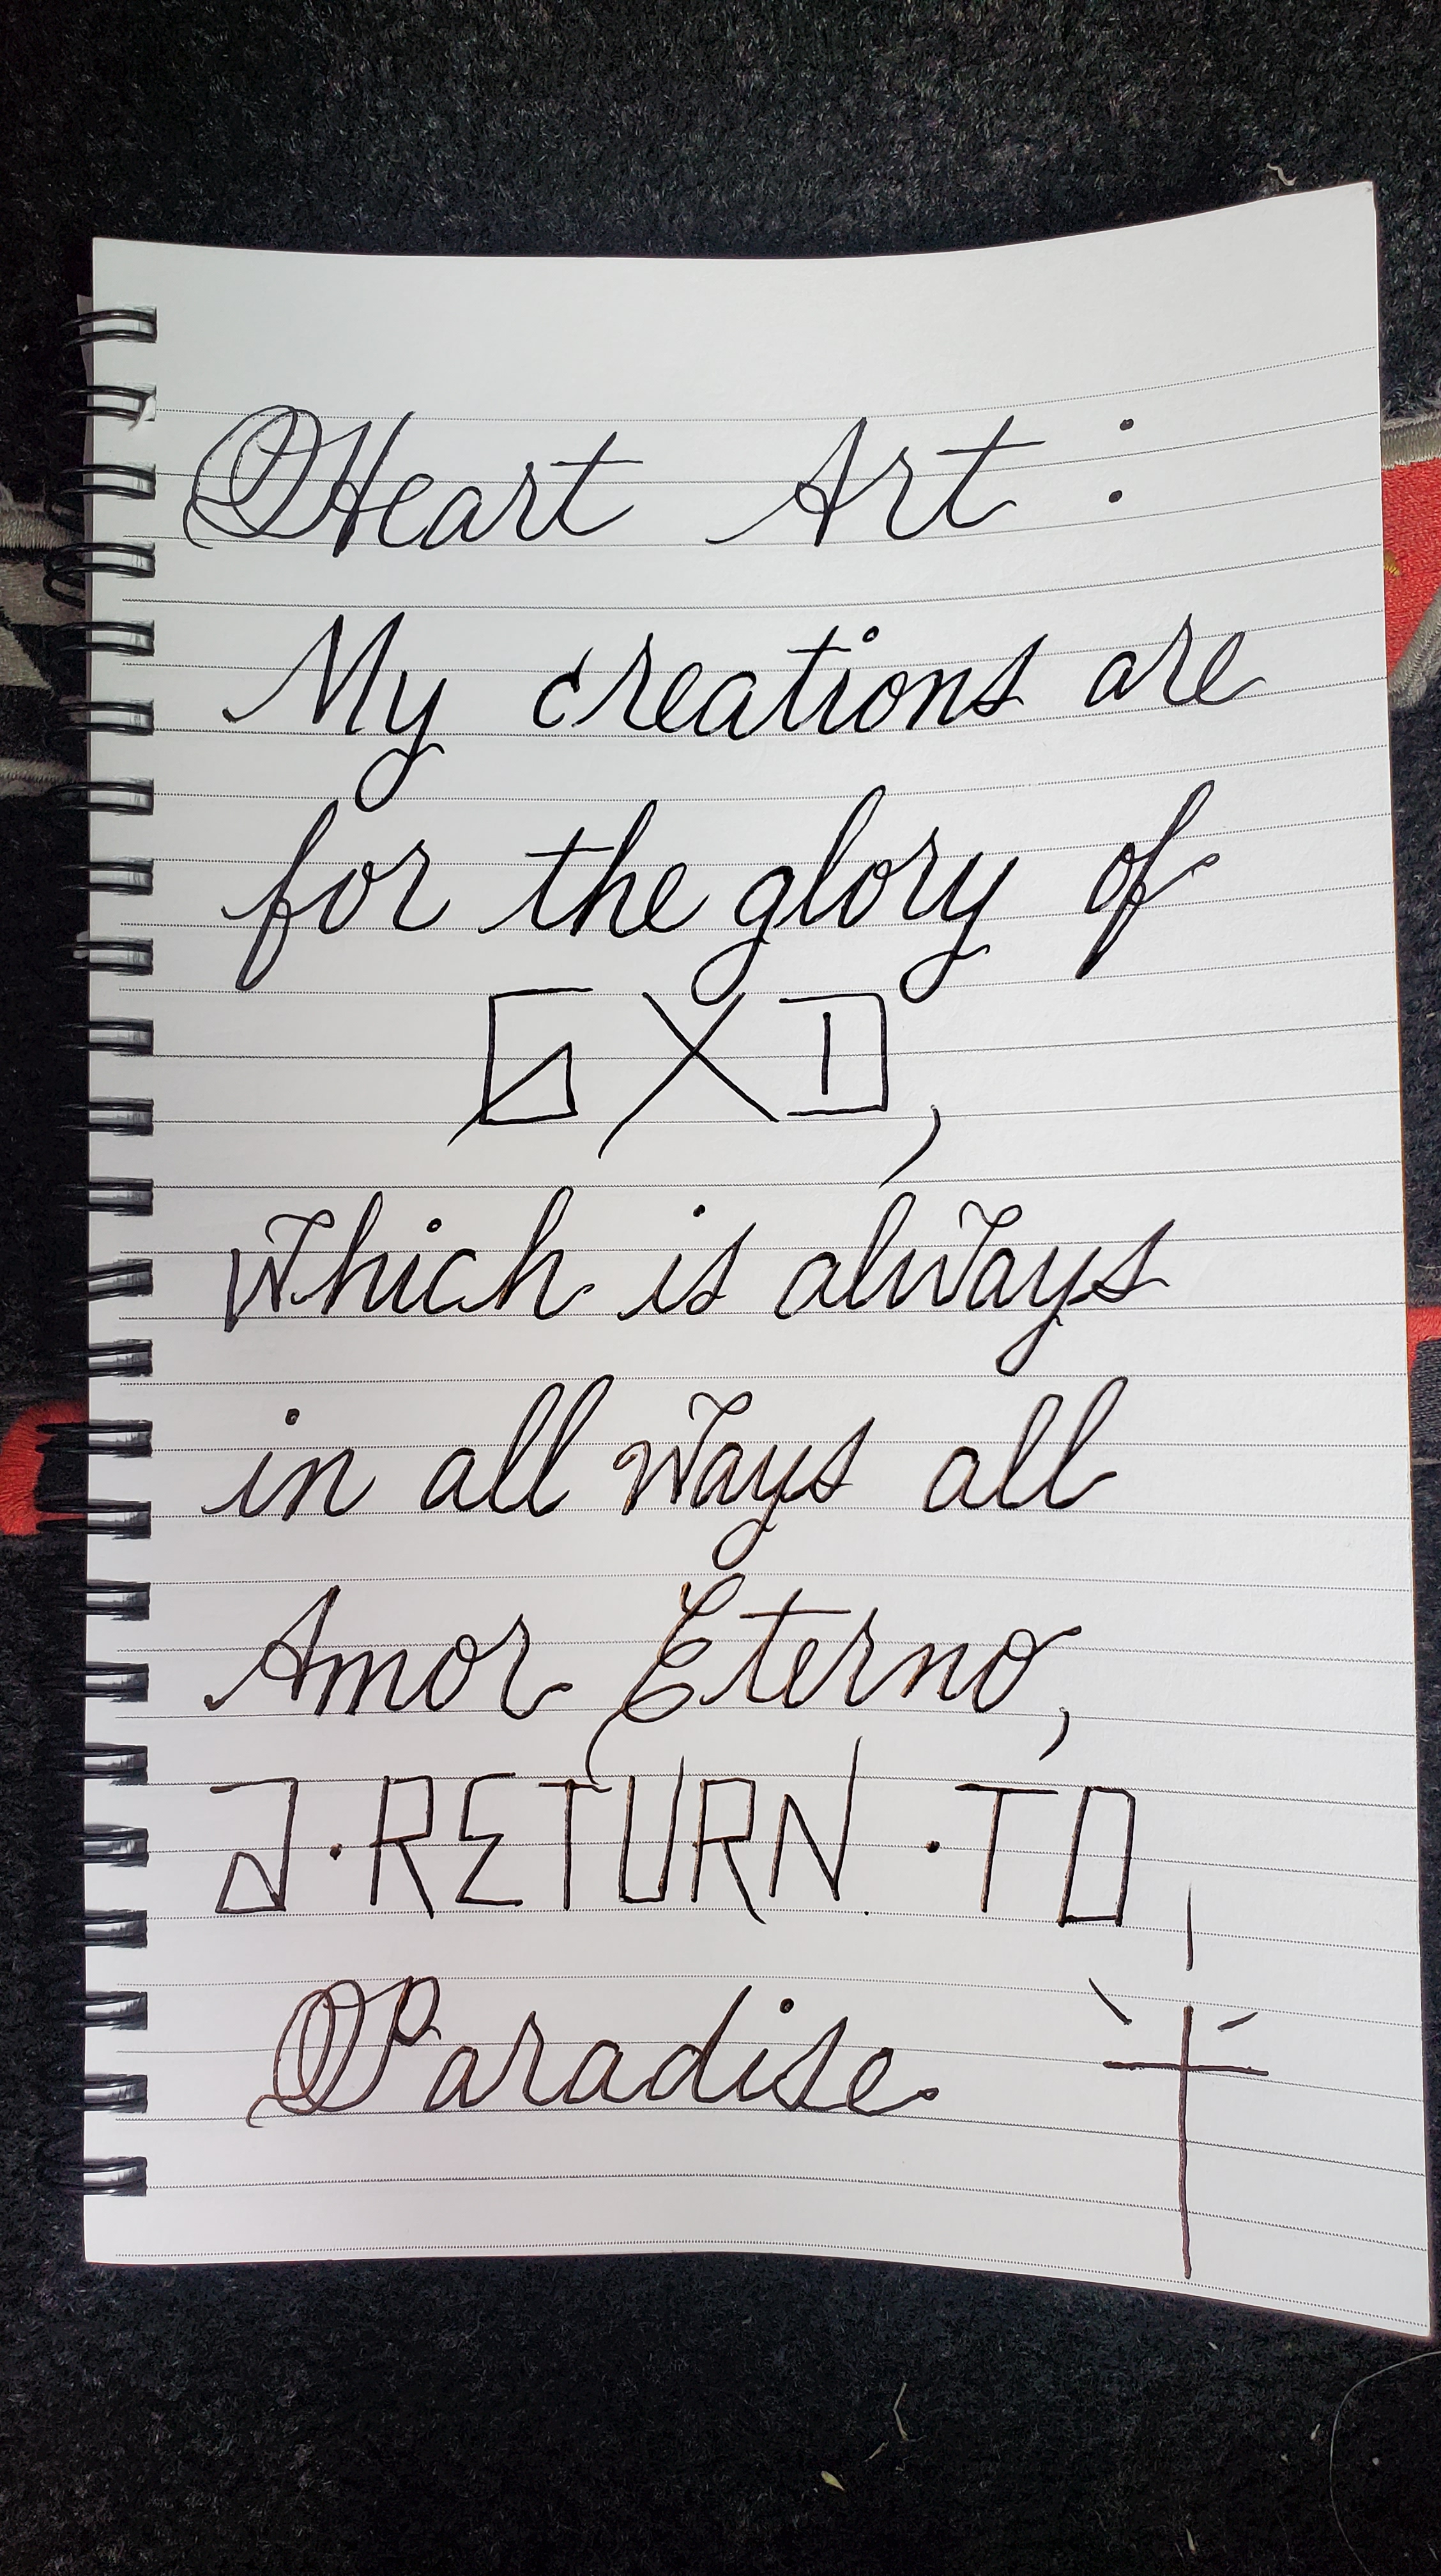 Heart Art :
My creations are
for the glory of
GXD,
Which is always
in all Ways all
Amor Eterno,
a·RETURN·TO
Paradise